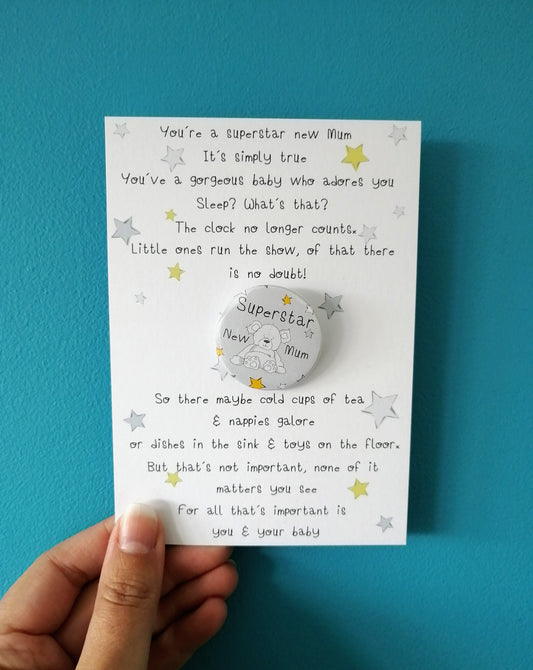 You're a superstar new Mum
It's simply true
You've a gorgeous baby who adores you
Sleep? What's that?
The clock no longer counts.
Little ones run the show, of that there
is no doubt!
Superstar
New
Mum
So there maybe cold cups of tea
& nappies galore
or dishes in the sink & toys on the floor.
But that's not important, none of it
matters you see
For all that's important is
you & your baby